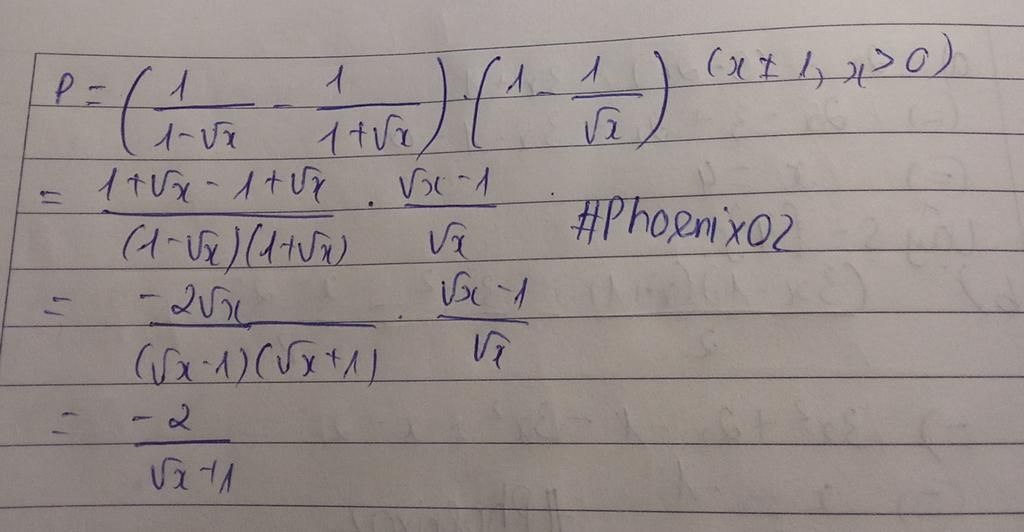 P = (1/(1-√x) - 1/(1+√x)) · (1 - 1/√x) (x ≠ 1, x > 0)
= (1+√x - 1+√x)/((1-√x)(1+√x)) · (√x - 1)/√x
#Phoenix02
= (-2√x)/((√x-1)(√x+1)) · (√x - 1)/√x
= -2/(√x+1)